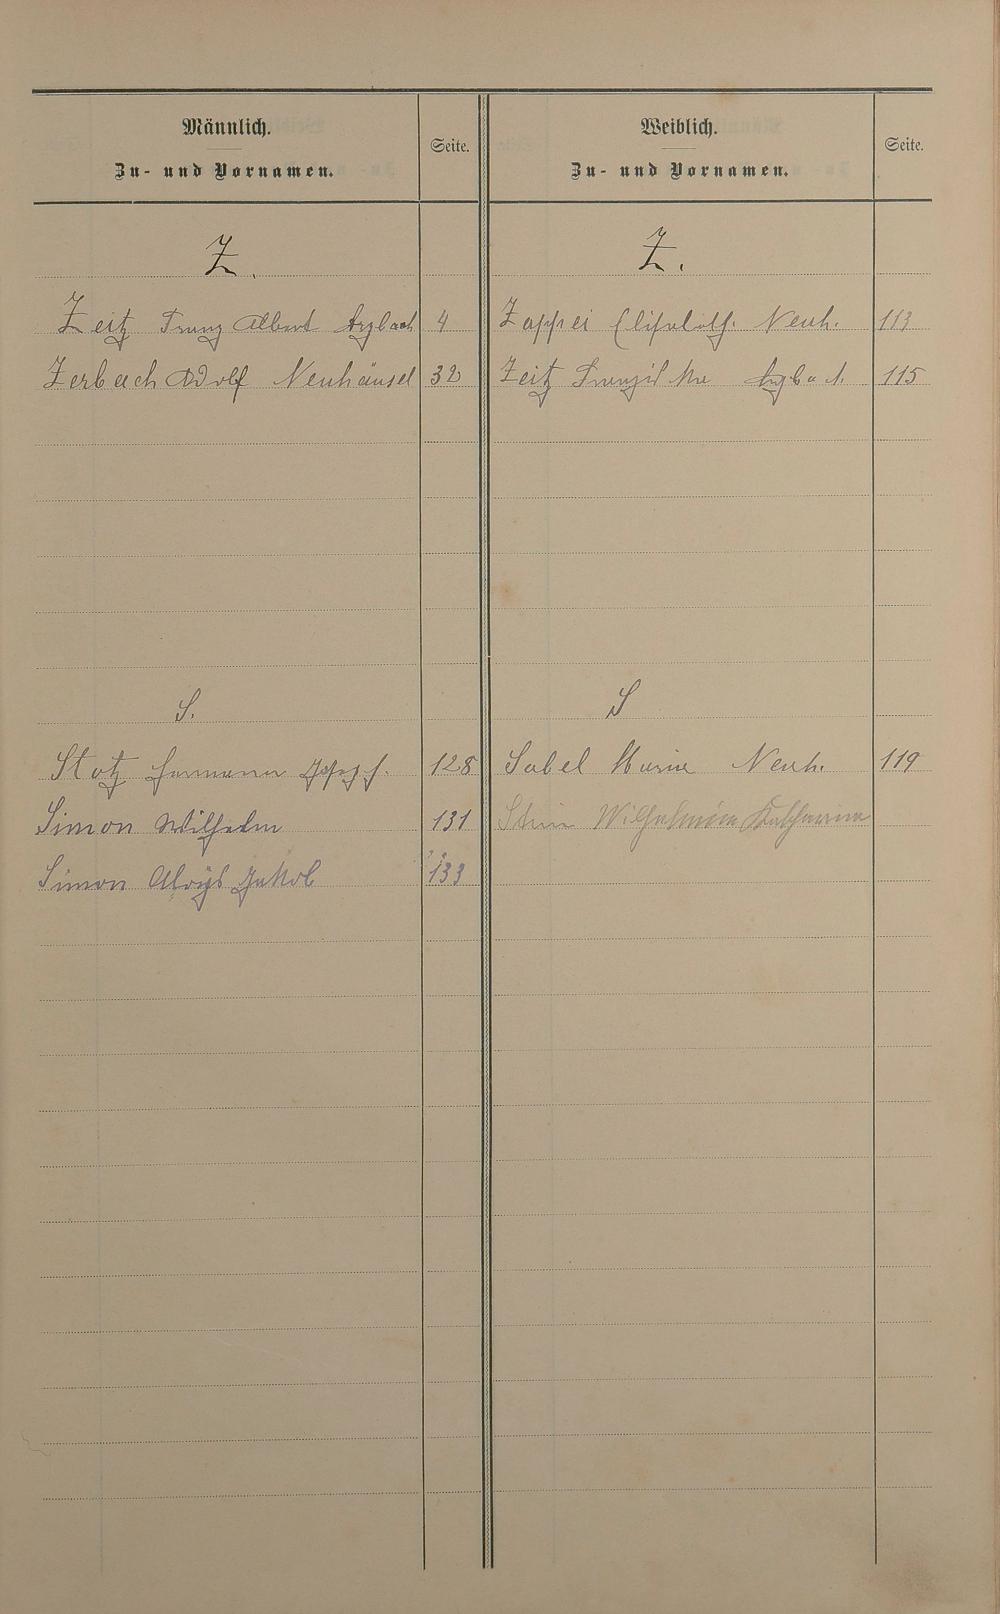 Männlich.
Zu- und Vornamen.
Seite.
Z.
Zeitz Franz Albert Arzbach 4
Zerbach Adolf Neuhäusel 32
S.
Stotz Hermann Joseph. 128
Simon Wilhelm 131
Simon Aloys Jakob 133
Weiblich.
Zu- und Vornamen.
Seite.
Z.
Zappei Elisabeth. Neuh. 113
Zeitz Franziska Arzbach. 115
S
Sabel Maria Neuh. 119
Wilhelmine Katharina